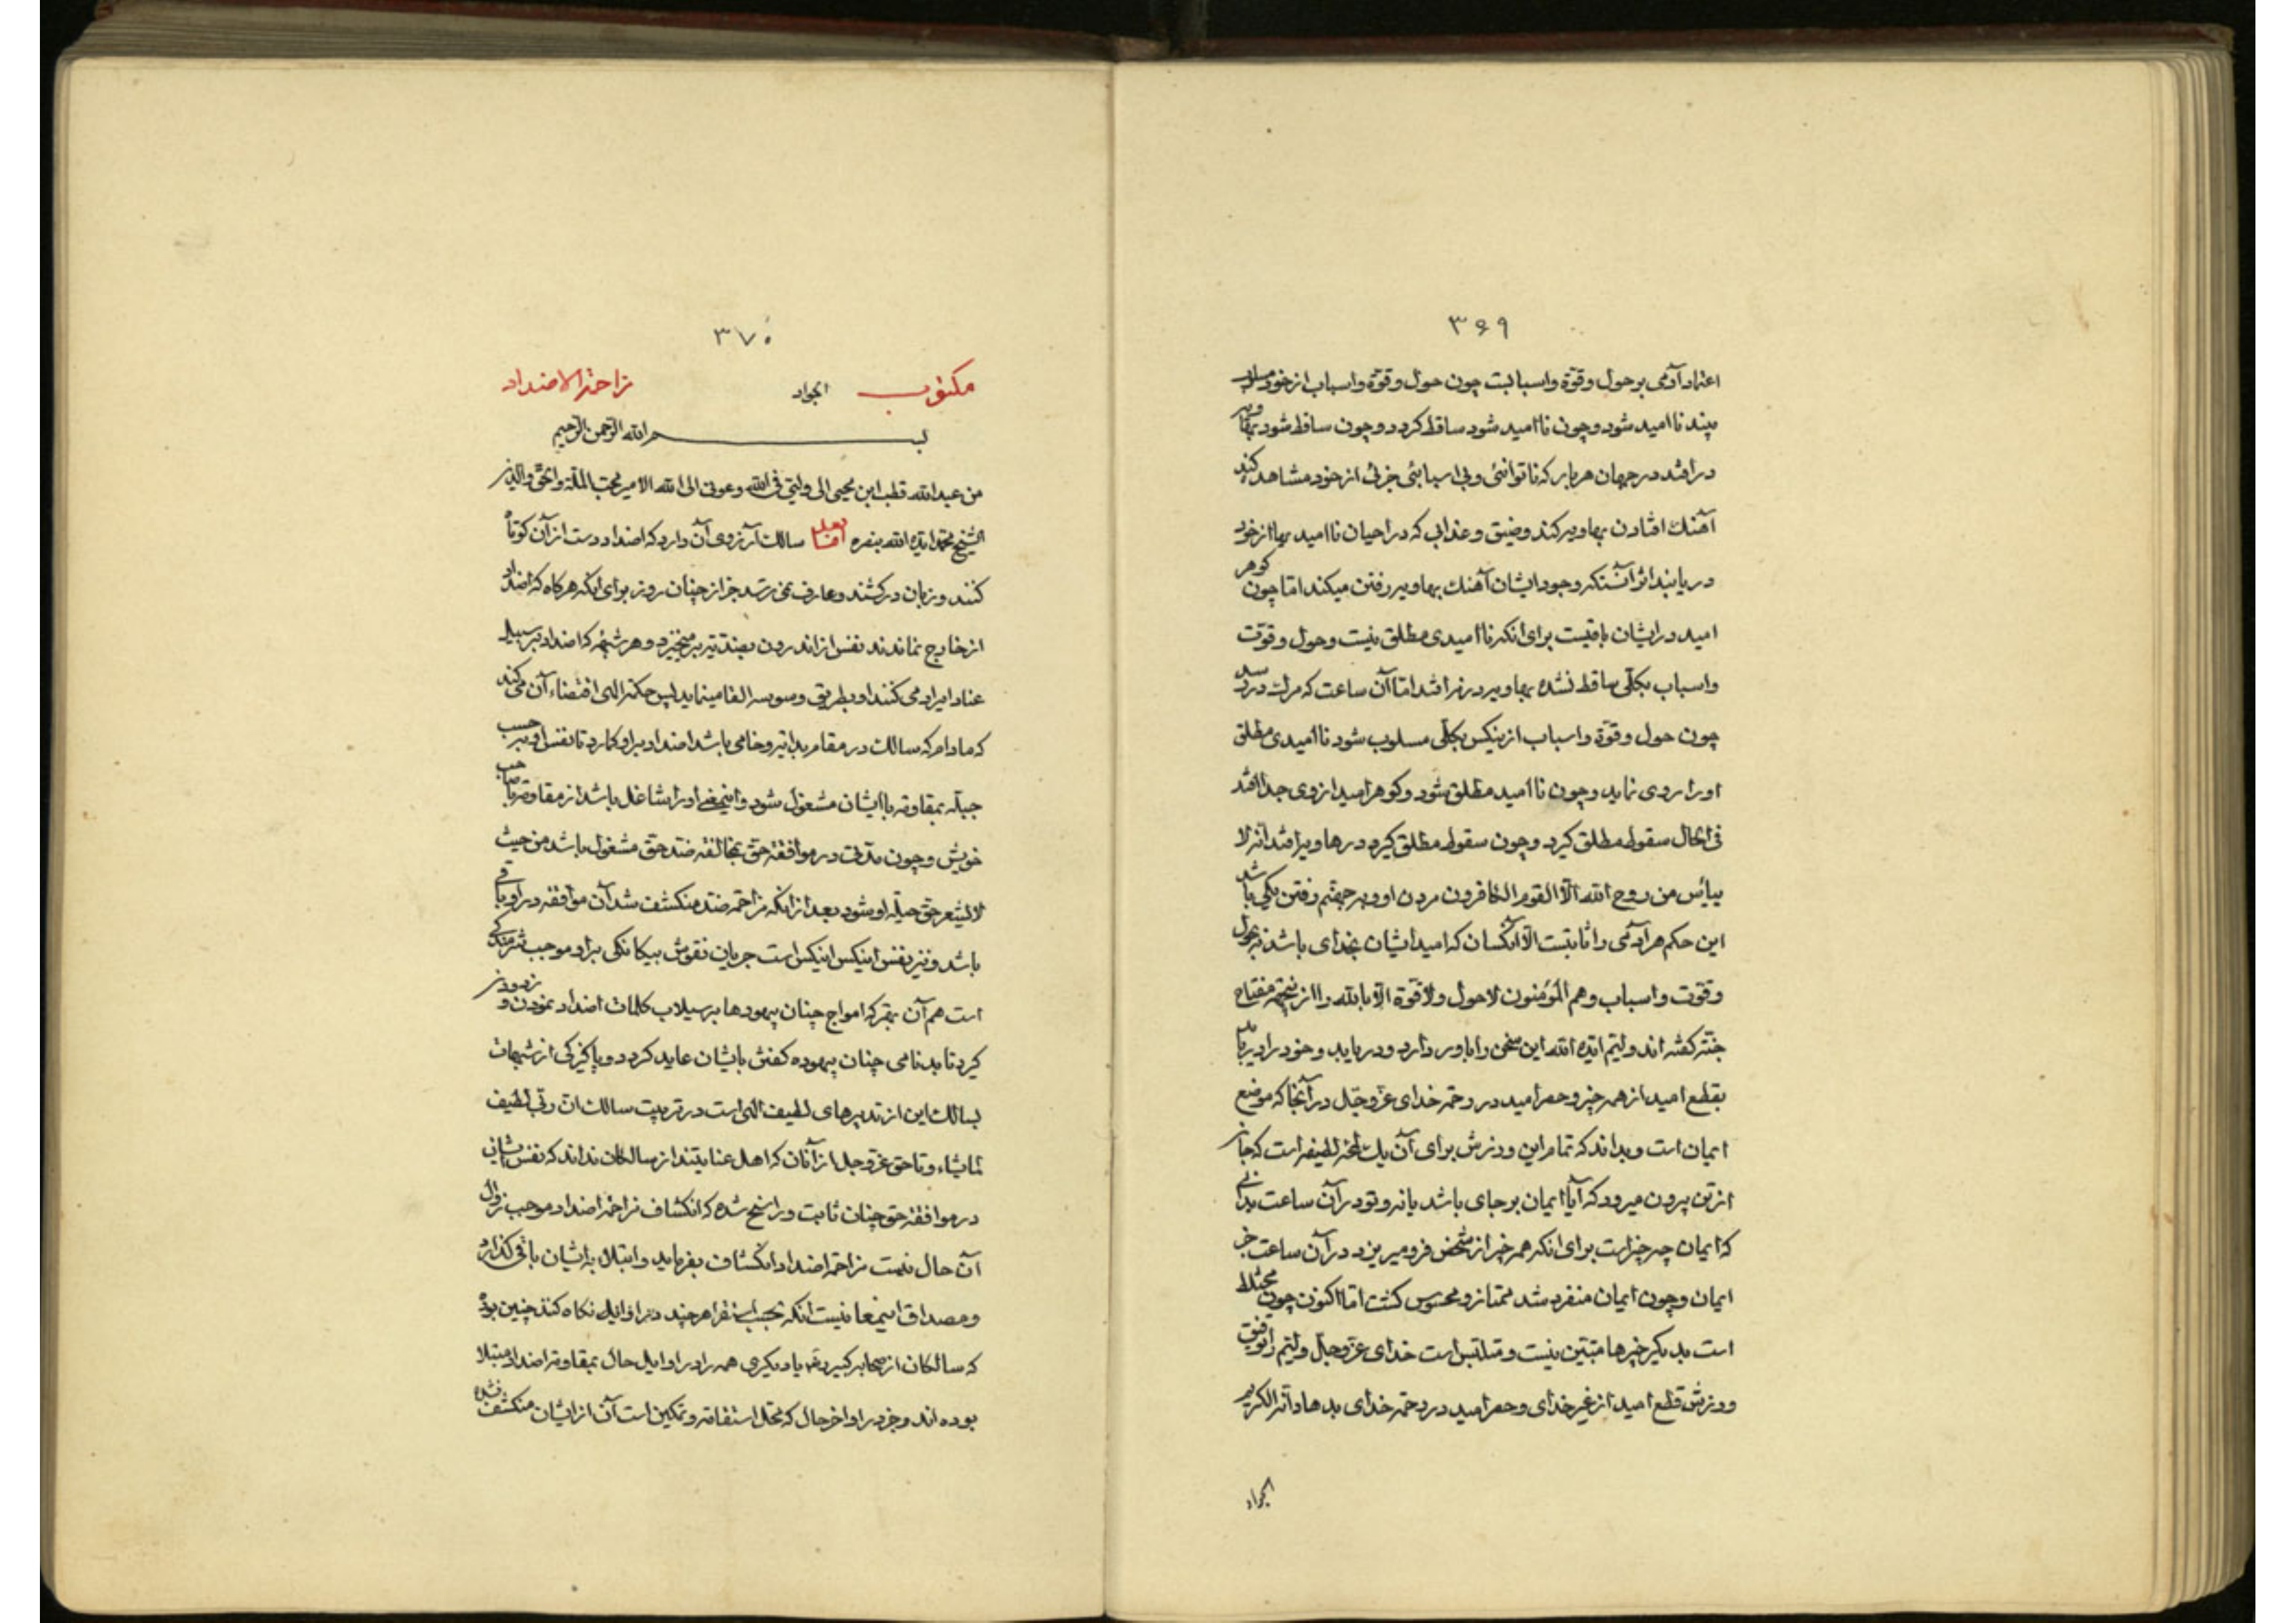 ۳۶۹
اعتماد آدمی بر حول و قوّة و اسبابست چون حول و قوّة و اسباب از خود مسلوب
بیند ناامید شود و چون ناامید شود ساقط کردد و چون ساقط شود بهاویه
درافتد در جهان هر بار که ناتوانئی و بی اسبابئی جزئی از خود مشاهده کند
آهنك افتادن بهاویه کند و ضیق و عذابی که در احیان ناامیدیها از خود
دریابند اثر آنستکه وجود ایشان آهنك بهاویه رفتن میکند اما چون کوهر
امید در ایشان باقیست برای انکه ناامیدی مطلق نیست و حول و قوّت
و اسباب بکلّی ساقط نشده بهاویه در نرافتد امّا آن ساعت که مرك در رسد
چون حول و قوّة و اسباب از ینکس بکلّی مسلوب شود ناامیدی مطلق
او را روی نماید و چون ناامید مطلق شود و کوهر امید از وی جدا افتد
فی الحال سقوط مطلق کیرد و چون سقوط مطلق کیرد در هاویه افتد انه لا
ییأس من روح الله الّا القوم الکافرون مردن او و بر جهنّم رفتن یکی باشد
این حکم هر آدمی را ثابتست الّا آنکسان که امید ایشان بخدای باشد نه بحول
و قوّت و اسباب و هم المؤمنون لا حول و لا قوّة الّا بالله را از ینجهة مفتاح
جنّت کفته اند ولیّم ایّده الله این سخن را باور دارد و دریابد و خود را
بقطع امید از همه چیز و حصر امید در رحمة خدای عزّ و جلّ در آنجا که موضع
ایمان است و بداند که تمام این ورزش برای آن یك لمحه لطیفه است که جان
از تن بیرون میرود که آیا ایمان بر جای باشد یا نه و تو در آن ساعت بدانی
که ایمان چه چیز است برای انکه همه چیز از شخص فرو میریزد در آن ساعت جز
ایمان و چون ایمان منفرد شد ممتاز و محسوس کشت امّا اکنون چون مختلط
است بدیکر چیزها متبیّن نیست و متلبّس است خدای عزّ و جلّ ولیّم را توفیق
ورزش قطع امید از غیر خدای و حصر امید در رحمة خدای بدهاد انّه الکریم
الجواد
۳۷۰
مکتوب الجواد مزاحمة الاضداد
بسم الله الرّحمن الرّحیم
من عبد الله قطب ابن محیی الی ولیّی فی الله و عونی الی الله الامیر محبّ الملّة و الحقّ و الدّین
الشّیخ محمّد ایّده الله بنصره امّا بعد سالك آرزوی آن دارد که اضداد دست از آن کوتاه
کنند و زبان درکشند و عارف نمی ترسد جز از چنان روز برای انکه هر کاه که اضداد
از خارج نماندند نفس از اندرون بضدّیّة برمیخیزد و هر شبهه که اضداد بر سبیل
عناد ایراد می کنند او بطریق وسوسه القا مینماید پس حکمة الهی اقتضاء آن می کند
که مادام که سالك در مقام بدایة و خامی باشد اضداد بر او کمارد تا نفس او بر حسب
جبلّه بمقاومة با ایشان مشغول شود و اینمعنی او را شاغل باشد از مقاومة با صاحب
خویش و چون مدّتی در موافقة حق بمخالفة ضد حق مشغول باشد من حیث
لا یشعر حق جبلّه او شود بعد از انکه مزاحمة ضد منکشف شد آن موافقه در او باقی
باشد و نیز نفس اینکس اینکس است جریان نقوش بیکانکی بر او موجب شرمندکی
است هم آن بهتر که امواج چنان بیهودها بر سیلاب کلمات اضداد نمودن و
کیرد تا بدنامی چنان بیهوده کفتن بایشان عاید کردد و پاکیزکی از شبهات
بسالك این از تدبیرهای لطیف الهی است در تربیت سالك انّ ربّی لطیف
لما یشاء و تا حق عزّ و جل از آنان که اهل عنایتند از سالکان نداند که نفس ایشان
در موافقة حق چنان ثابت و راسخ شده که انکشاف مزاحمة اضداد موجب زوال
آن حال نیست مزاحمة اضداد انکشاف نفرماید و ابتلا بایشان باقی کذارد
و مصداق اینمعنا نیست انکه بحسب استقرا هر چند در اوایل نکاه کند چنین بوده
که سالکان از صحابه کبیر دیکری همه را در اوایل حال بمقاومة اضداد مبتلا
بوده اند و جز در اواخر حال که محل استقامة و تمکین است آن از ایشان منکشف نشده